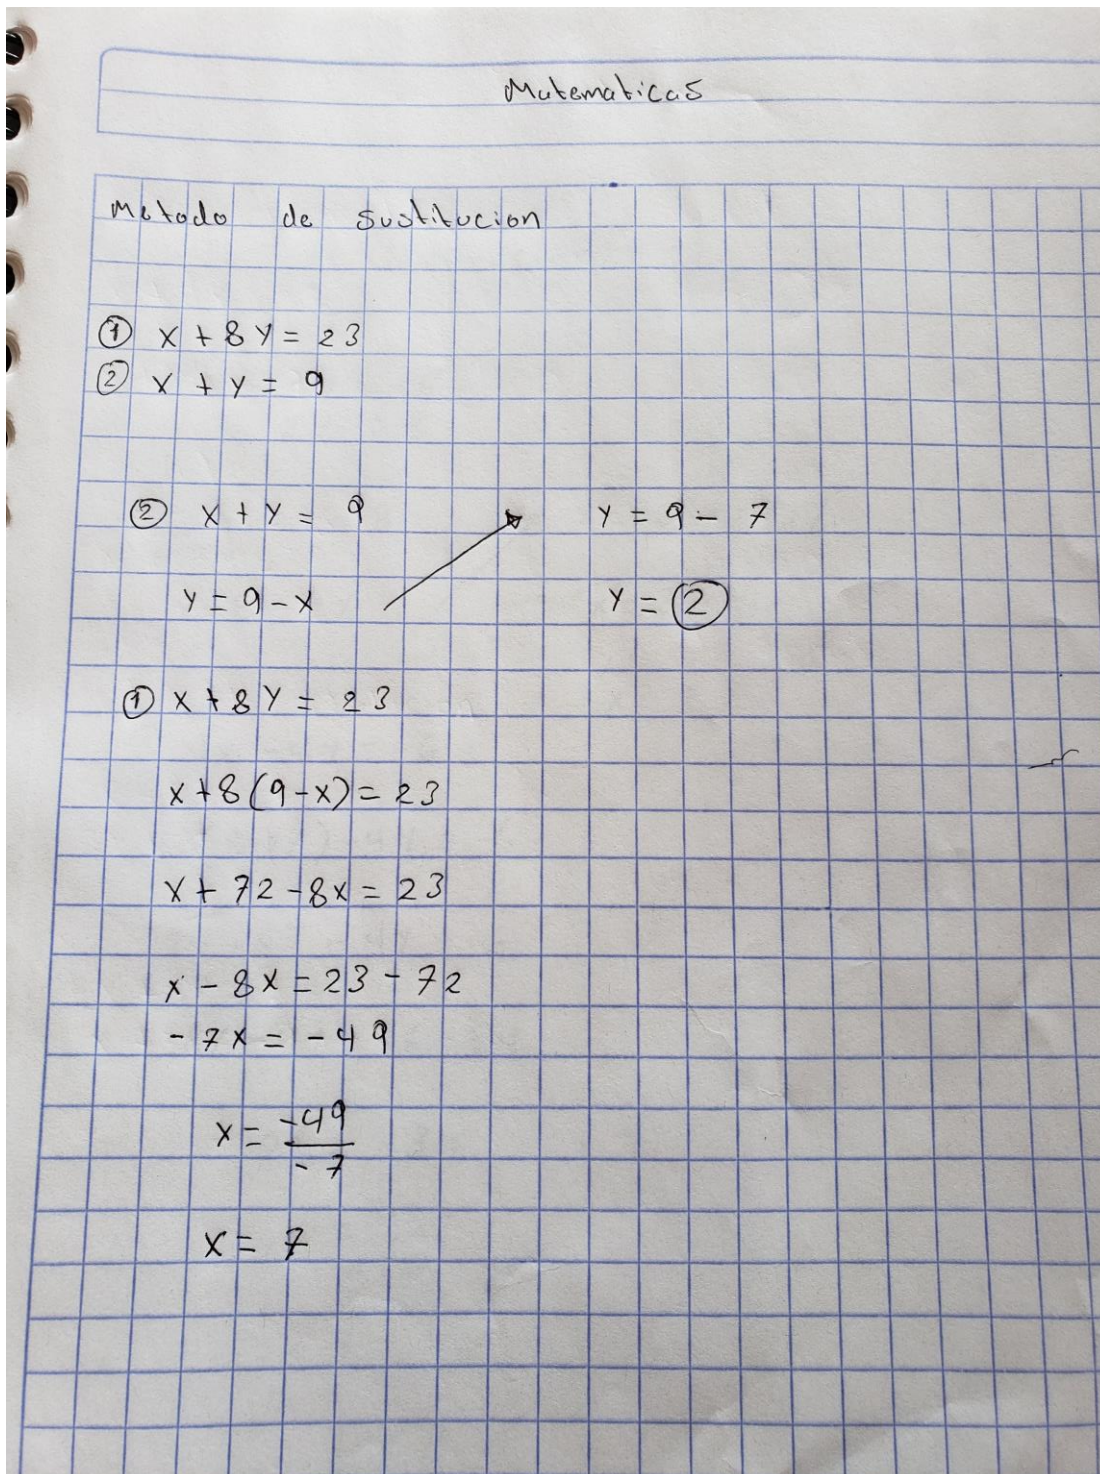 Matematicas
Metodo de sustitucion
① x + 8y = 23
② x + y = 9
② x + y = 9
y = 9 - x
y = 9 - 7
y = 2
① x + 8y = 23
x + 8(9 - x) = 23
x + 72 - 8x = 23
x - 8x = 23 - 72
- 7x = - 49
x = -49
- 7
x = 7